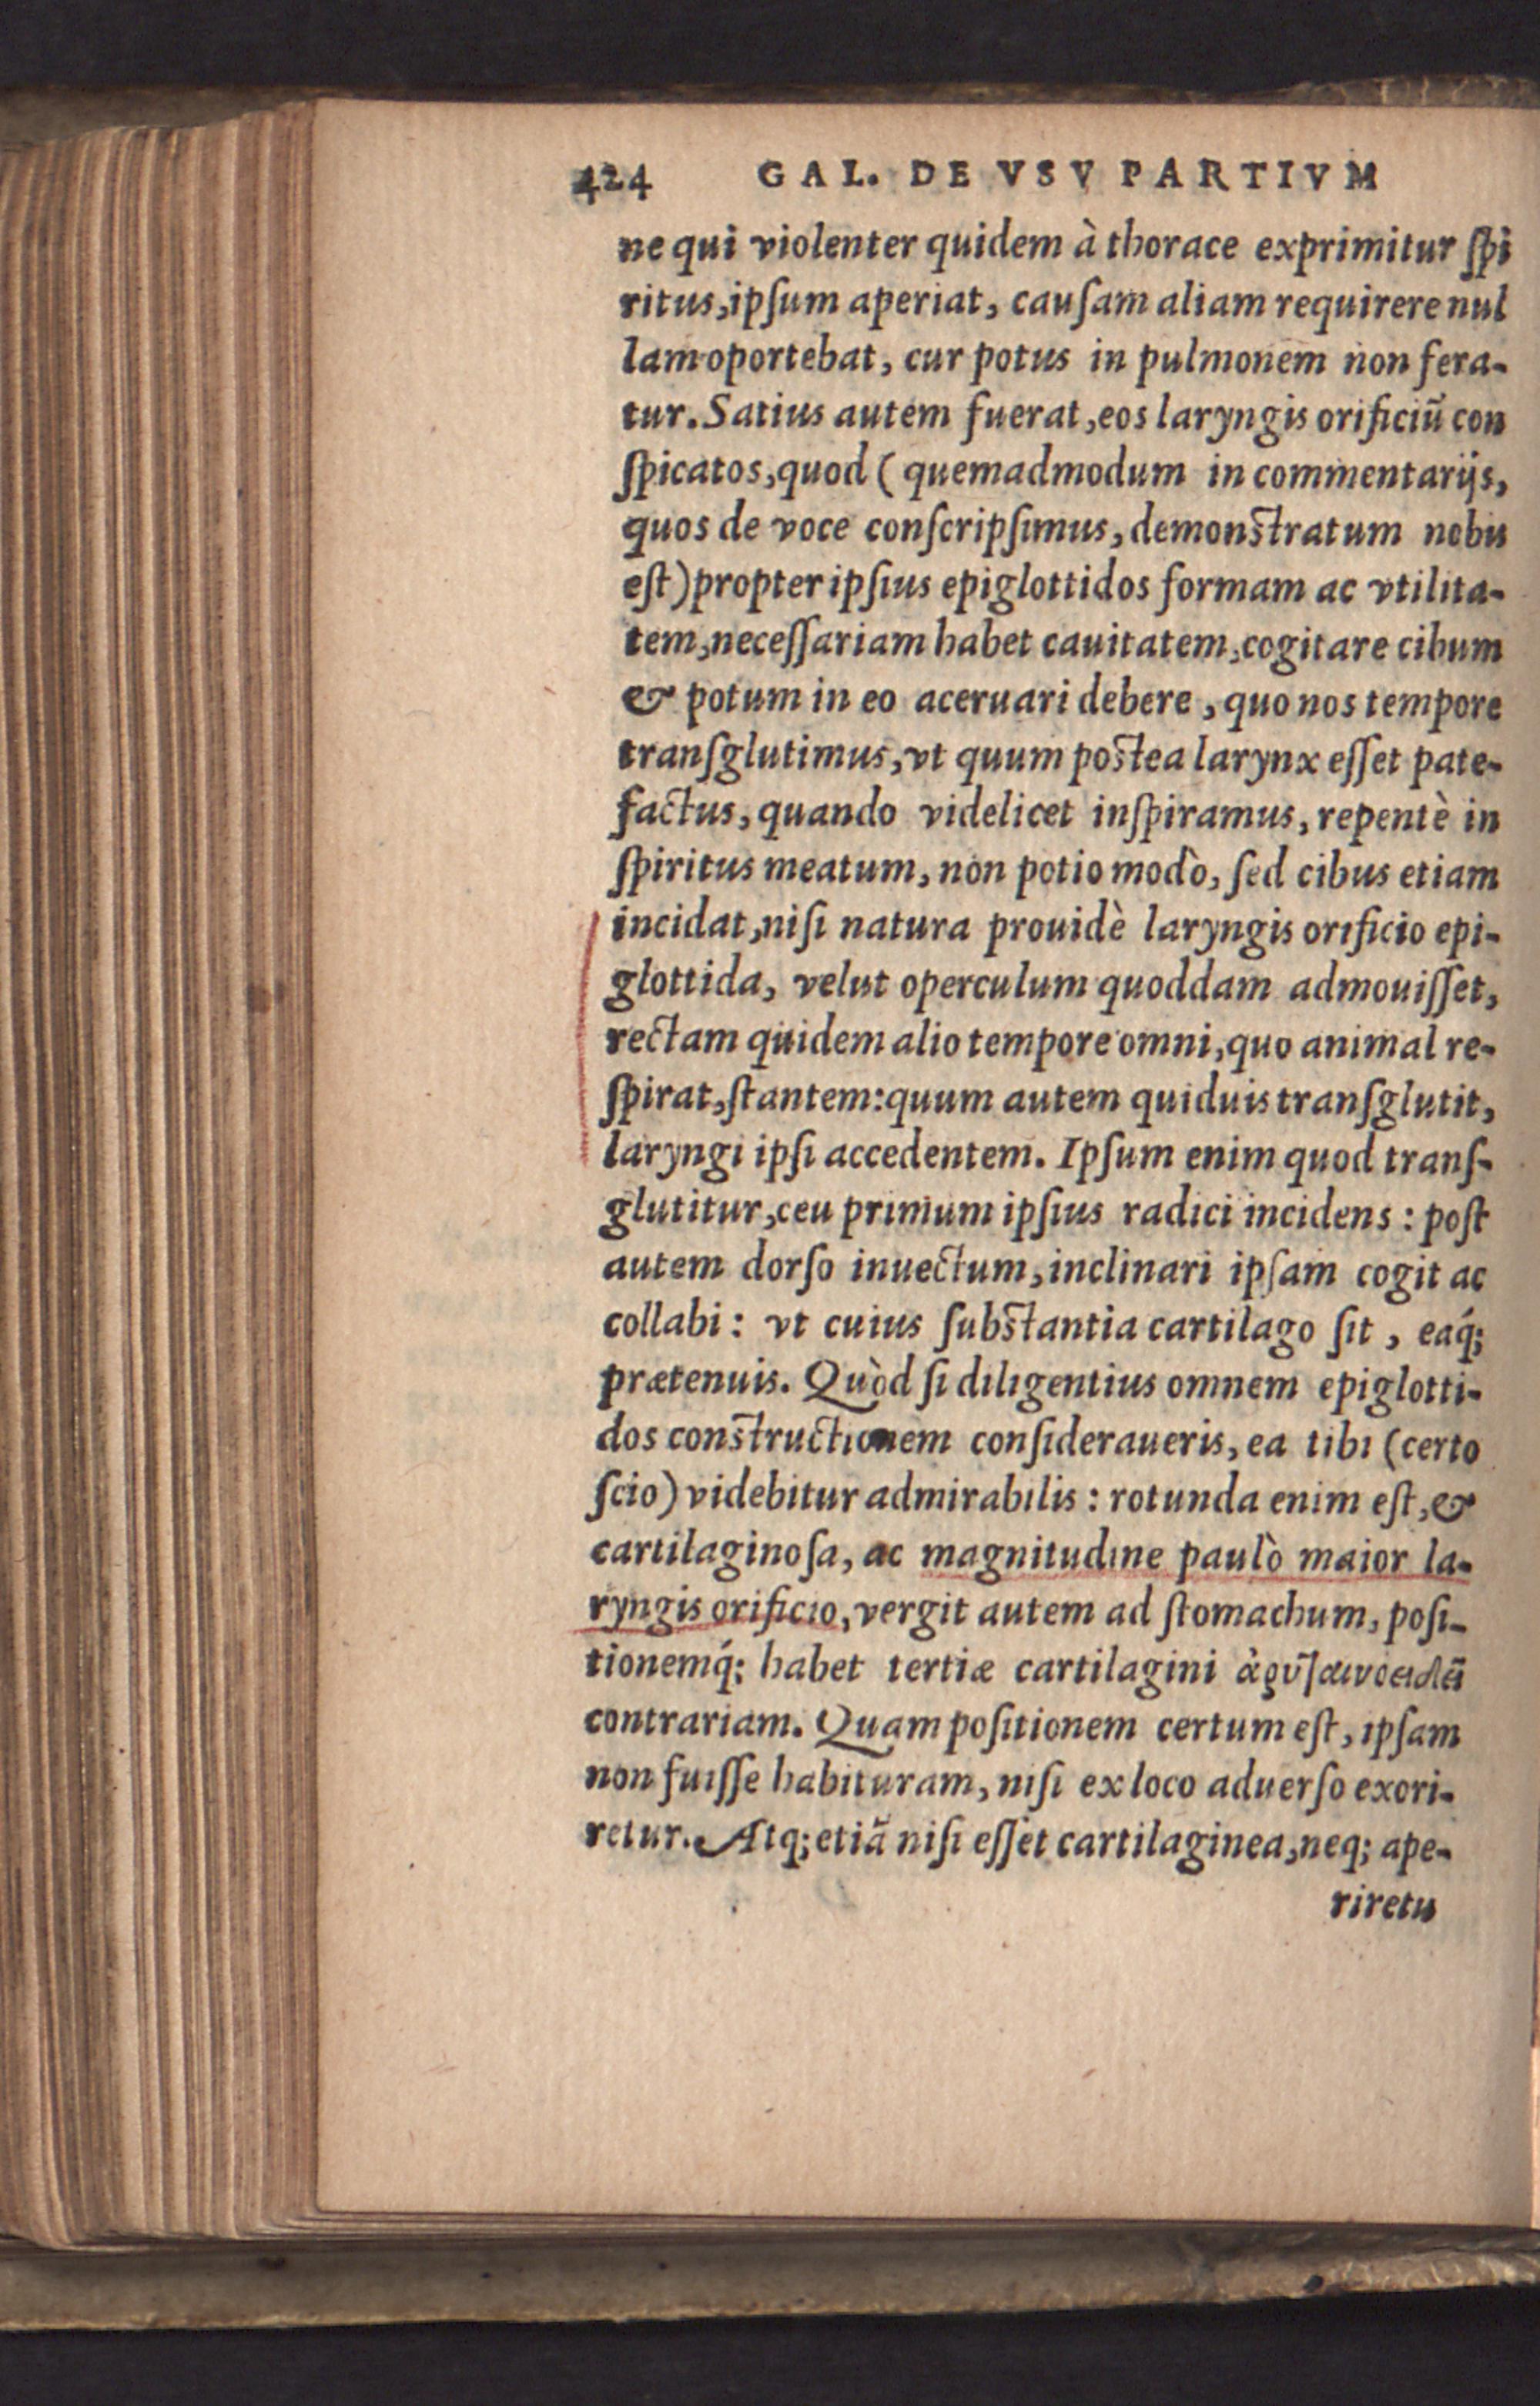 424 GAL. DE VSV PARTIVM
ne qui violenter quidem à thorace exprimitur ſpi
ritus, ipſum aperiat, cauſam aliam requirere nul
lam oportebat, cur potus in pulmonem non fera-
tur. Satius autem fuerat, eos laryngis orificiũ con
ſpicatos, quod ( quemadmodum in commentarijs,
quos de voce conſcripſimus, demonſtratum nobis
eſt) propter ipſius epiglottidos formam ac vtilita-
tem, neceſſariam habet cauitatem, cogitare cibum
& potum in eo aceruari debere, quo nos tempore
tranſglutimus, vt quum poſtea larynx eſſet pate-
factus, quando videlicet inſpiramus, repentè in
ſpiritus meatum, non potio modò, ſed cibus etiam
incidat, niſi natura prouidè laryngis orificio epi-
glottida, velut operculum quoddam admouiſſet,
rectam quidem alio tempore omni, quo animal re-
ſpirat, ſtantem: quum autem quiduis tranſglutit,
laryngi ipſi accedentem. Ipſum enim quod tranſ-
glutitur, ceu primum ipſius radici incidens: poſt
autem dorſo inuectum, inclinari ipſam cogit ac
collabi: vt cuius ſubſtantia cartilago ſit, eaq́;
prætenuis. Quòd ſi diligentius omnem epiglotti-
dos conſtructionem conſideraueris, ea tibi (certo
ſcio) videbitur admirabilis: rotunda enim eſt, &
cartilaginoſa, ac magnitudine paulò maior la-
ryngis orificio, vergit autem ad ſtomachum, poſi-
tionemq́; habet tertiæ cartilagini
contrariam. Quam poſitionem certum eſt, ipſam
non fuiſſe habituram, niſi ex loco aduerſo exori-
retur. Atq; etiã niſi eſſet cartilaginea, neq; ape-
riretu